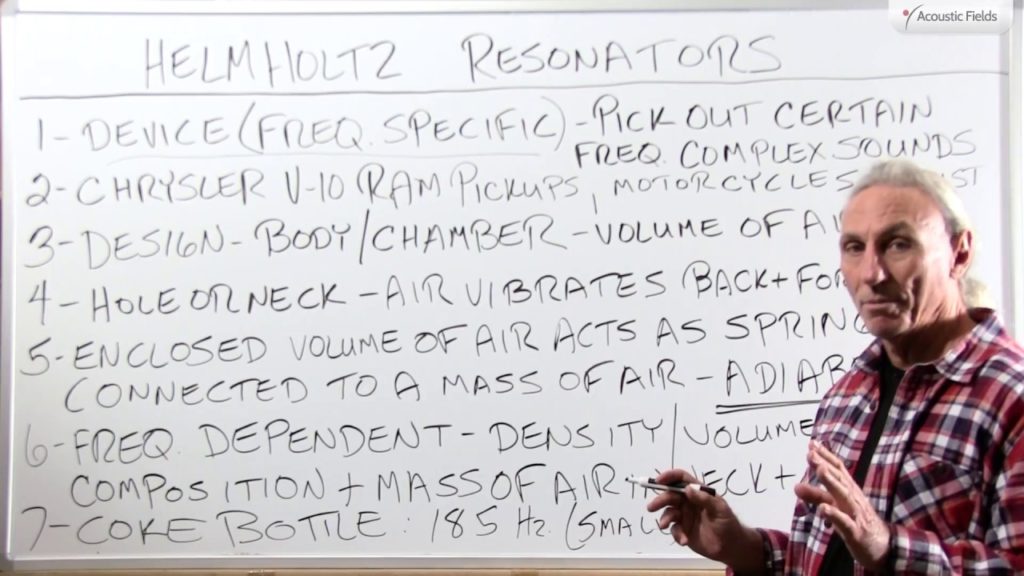 Acoustic Fields
HELMHOLTZ RESONATORS
1- DEVICE (FREQ. SPECIFIC) - PICK OUT CERTAIN
FREQ. COMPLEX SOUNDS
2- CHRYSLER V-10 RAM PICKUPS, MOTORCYCLES
3- DESIGN - BODY/CHAMBER - VOLUME OF
4- HOLE OR NECK - AIR VIBRATES BACK +
5- ENCLOSED VOLUME OF AIR ACTS AS SPRING
(CONNECTED TO A MASS OF AIR -
6- FREQ. DEPENDENT - DENSITY/VOLUME
COMPOSITION + MASS OF AIR NECK +
7- COKE BOTTLE: 185 Hz. (SMALL